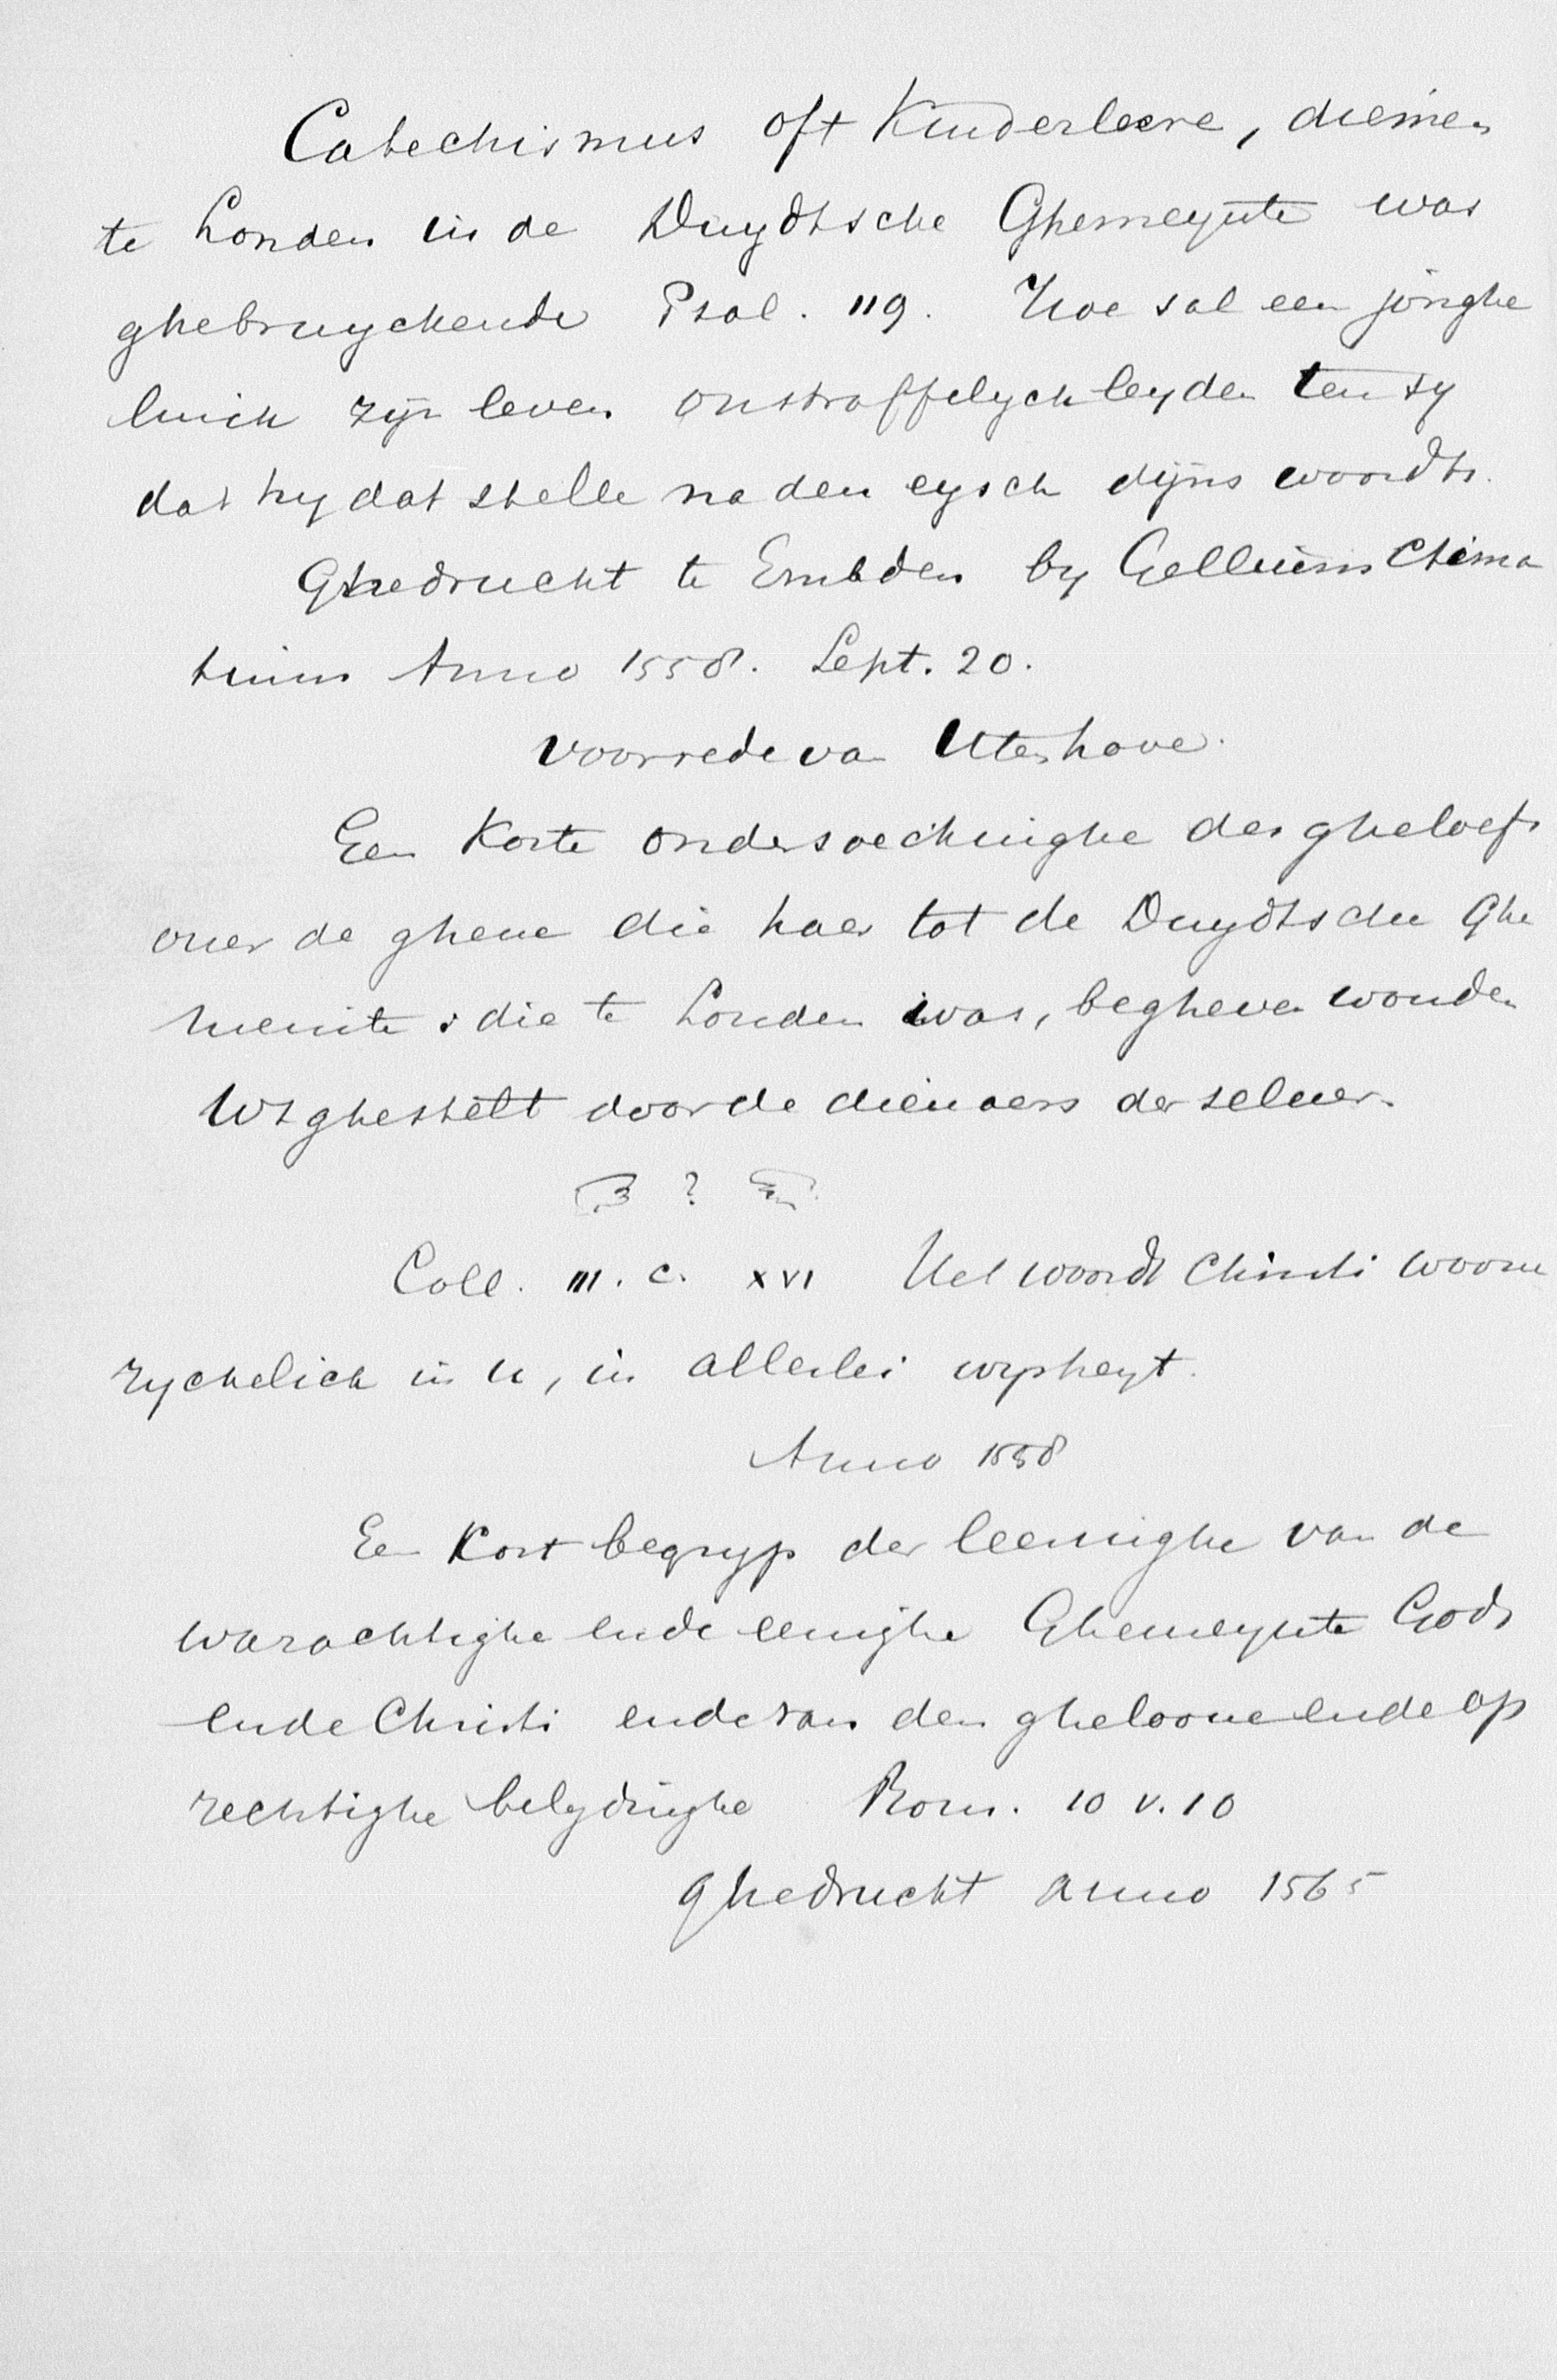 Catechismus oft Kinderleere, diemen
te Londen in de Duydtsche Ghemeynte was
ghebruyckende Psal. 119. Hoe sal een jonghe
linck zijn leven onstraffelyck leyden ten sy
dat hy dat stelle na den eysch dijns woordts.
Ghedruckt te Embden by Gellium Ctema
tium Anno 1558. Sept. 20.
Voorrede van Utenhove.
Een Korte ondersoeckinghe des gheloefs
over de ghene die haer tot de Duydtsche Ghe
meinte die te Londen was, begheven wouden
Wtghestelt door de dienaers derselver.
?
Coll. III. c. XVI Het woordt Christi woone
ryckelick in u, in allerlei wysheyt.
Anno 1558
Een Kort begryp der leeringhe van de
warachtighe ende eenighe Ghemeynte Gods
ende Christi ende van den gheloove ende op
rechtighe belydinghe Rom. 10 v. 10
ghedruckt anno 1565